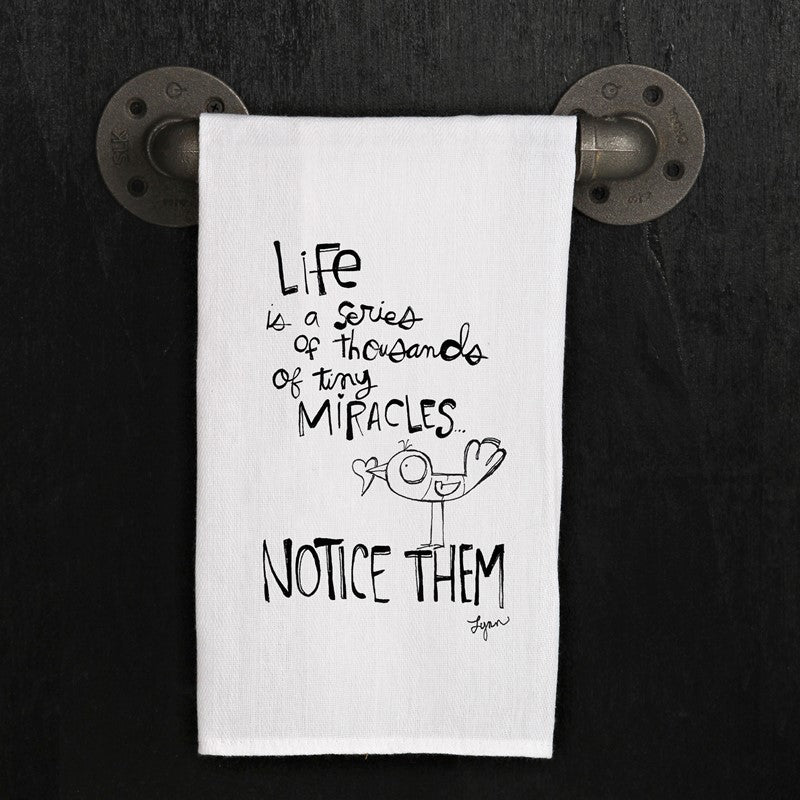 Life
is a series
of thousands
of tiny
MiRACLES...
NOTICE THEM
Lynn
SLK